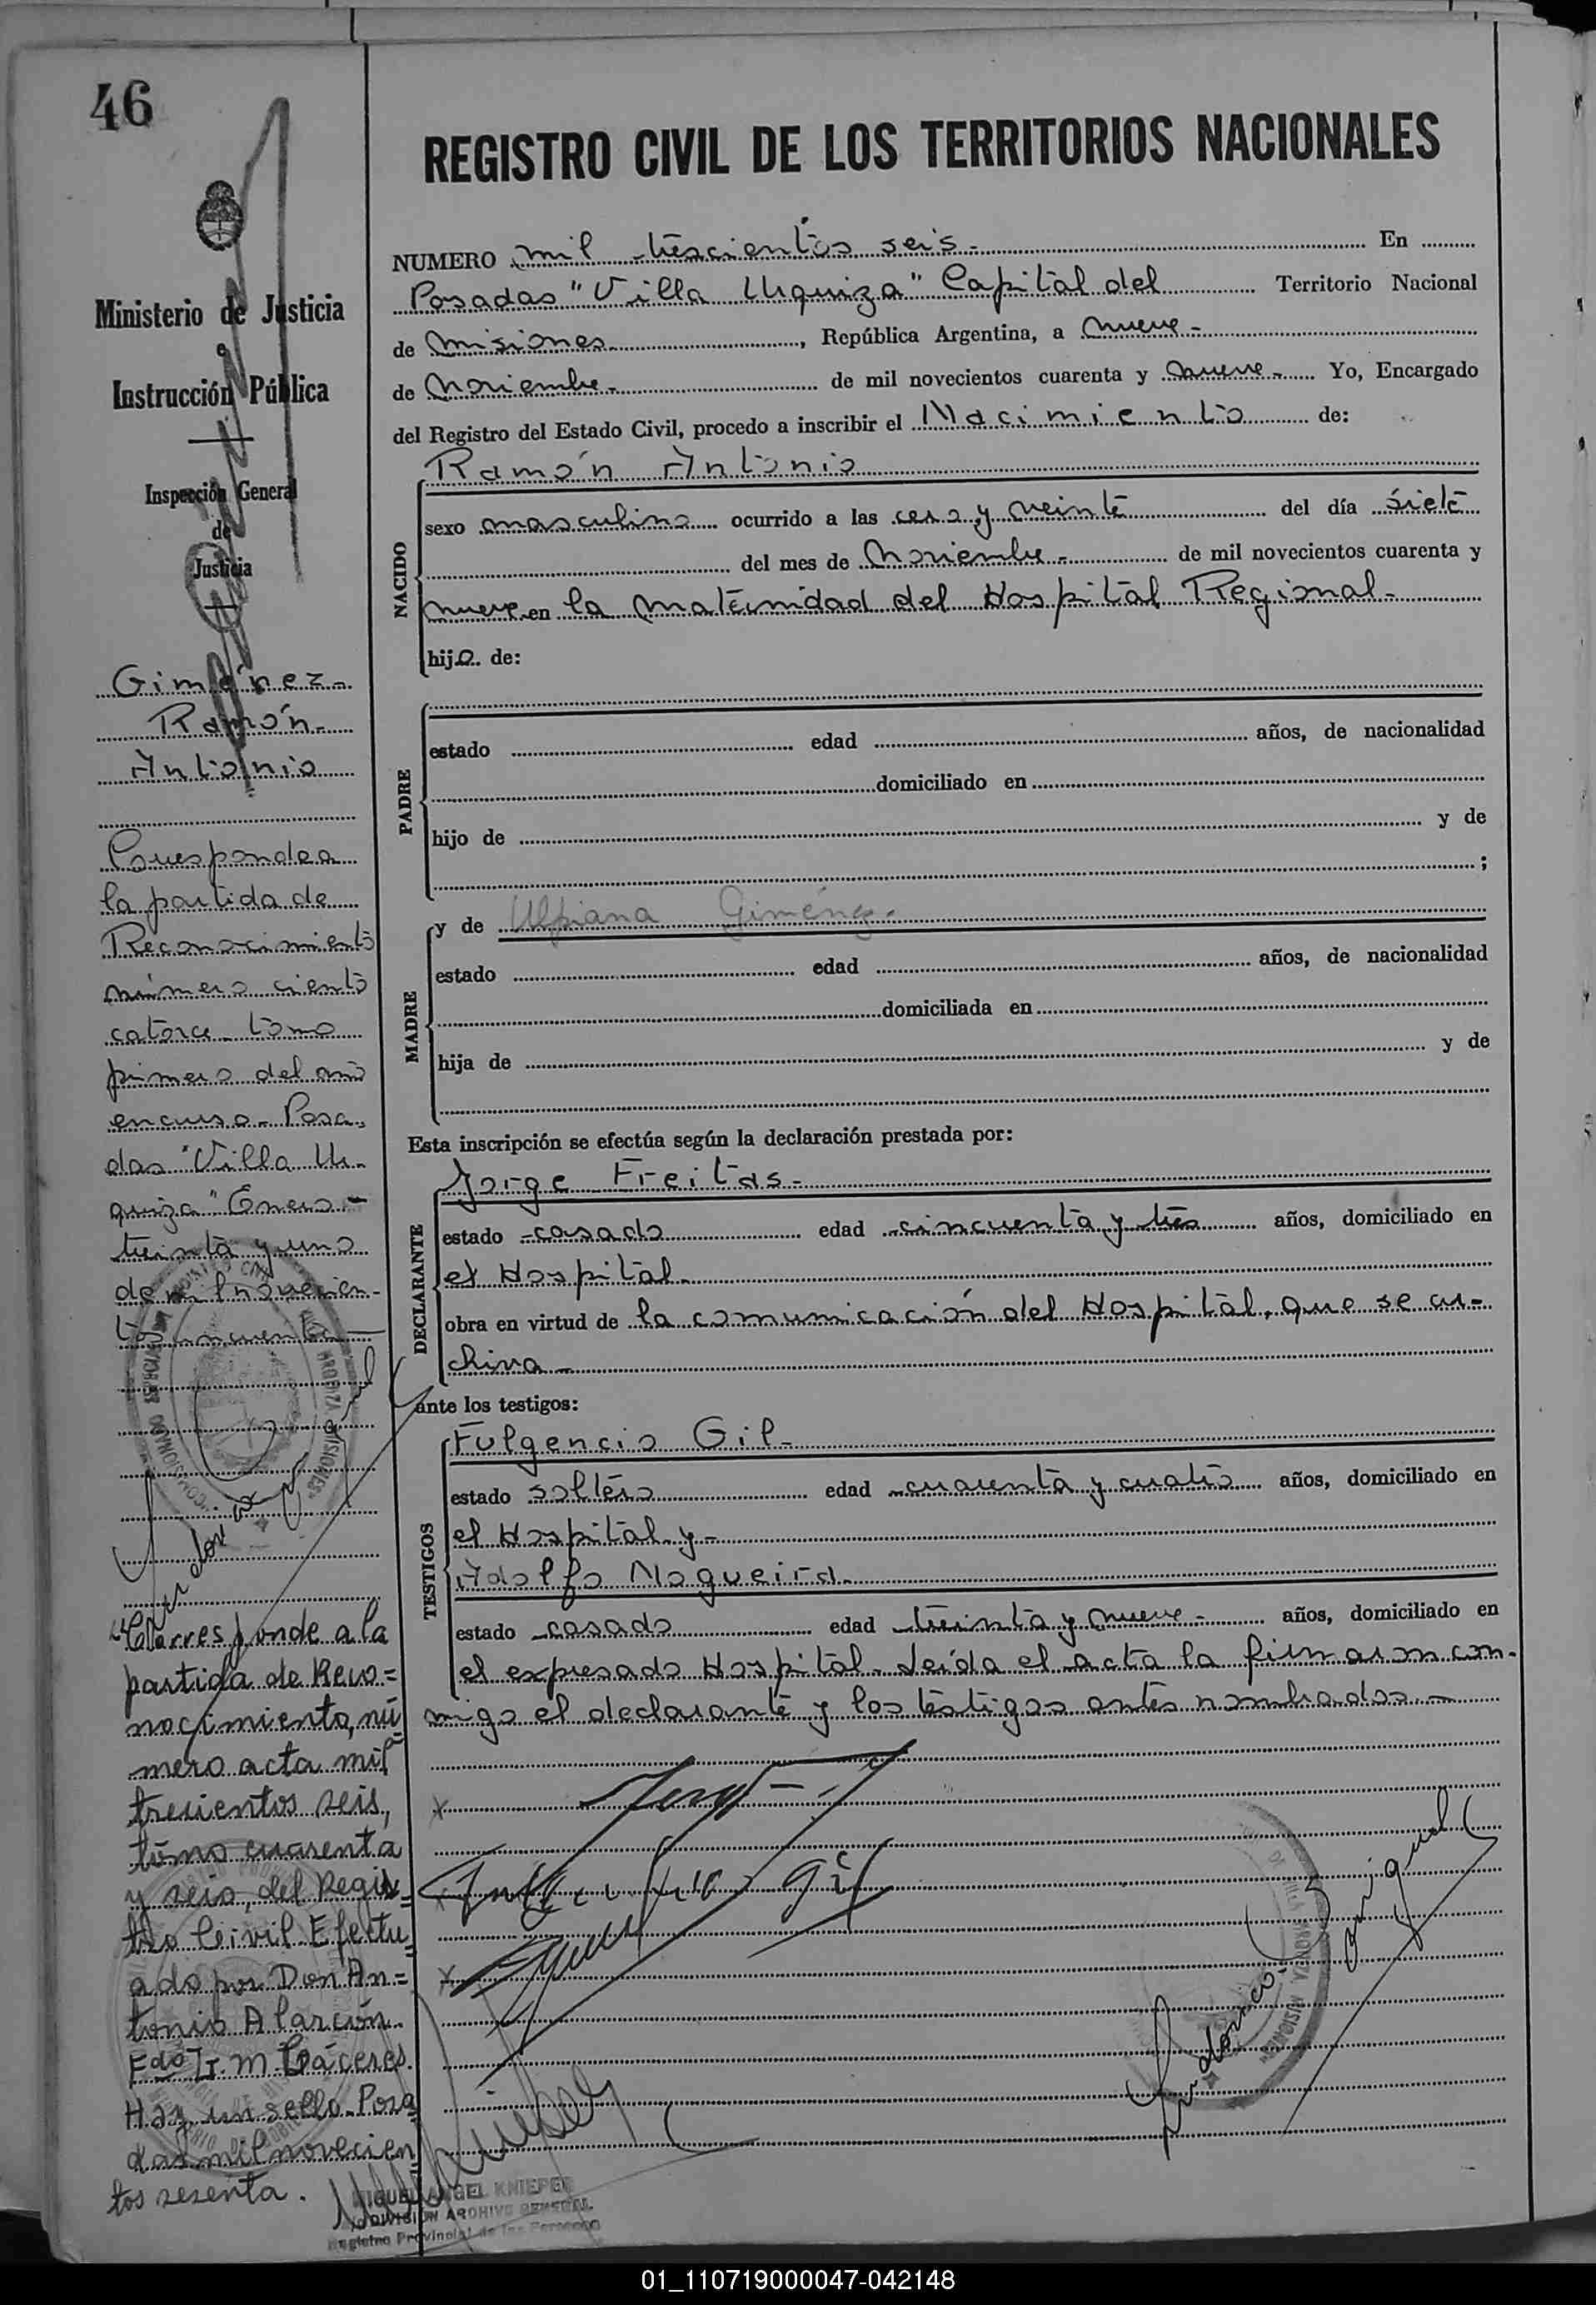 46
REGISTRO CIVIL DE LOS TERRITORIOS NACIONALES
Ministerio de Justicia
e
Instrucción Pública
Inspección General
de
Justicia
Giménez-
Ramón-
Antonio
Corresponde a
la partida de
Reconocimiento
número ciento
catorce tomo
primero del año
en curso- Posa-
das "Villa Ur-
quiza" Enero-
treinta y uno
de mil novecien-
tos cincuenta-
"Corresponde a la
partida de Reco=
nocimiento, nú
mero acta mil
trecientos seis,
tomo cuarenta
y seis, del Regis-
tro Civil Efectu
ado por Don An=
tonio Alarcón.
Fdo G. M. Cáceres.
Hay un sello. Posa
das mil novecien
tos sesenta.
MIGUEL ANGEL KNIEPER
DIVISION ARCHIVO GENERAL
Registro Provincial de las Personas
NUMERO mil trescientos seis- En
Posadas "Villa Urquiza" Capital del Territorio Nacional
de Misiones, República Argentina, a nueve-
de Noviembre- de mil novecientos cuarenta y nueve- Yo, Encargado
del Registro del Estado Civil, procedo a inscribir el Nacimiento de:
NACIDO
Ramón Antonio
sexo masculino ocurrido a las cero y veinte del día siete
del mes de Noviembre- de mil novecientos cuarenta y
nueve en la Maternidad del Hospital Regional-
hijo de:
PADRE
estado edad años, de nacionalidad
domiciliado en
hijo de y de
;
MADRE
y de Ulpiana Giménez.
estado edad años, de nacionalidad
domiciliada en
hija de y de
Esta inscripción se efectúa según la declaración prestada por:
DECLARANTE
Jorge Freitas-
estado casado edad cincuenta y tres años, domiciliado en
el Hospital-
obra en virtud de la comunicación del Hospital, que se ar-
chiva-
ante los testigos:
TESTIGOS
Fulgencio Gil-
estado soltero edad cuarenta y cuatro años, domiciliado en
el Hospital y-
Adolfo Nogueira-
estado casado edad treinta y nueve- años, domiciliado en
el expresado Hospital. Leída el acta la firmaron con-
migo el declarante y los testigos antes nombrados-
01_110719000047-042148